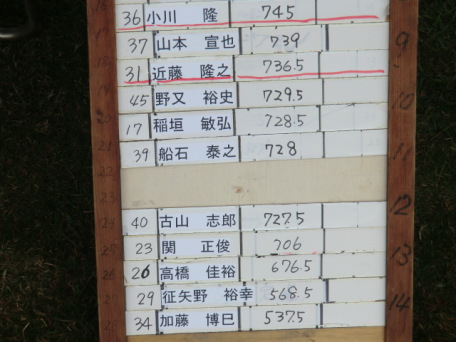 36 小川 隆 745
37 山本 宣也 739
9
31 近藤 隆之 736.5
45 野又 裕史 729.5
10
17 稲垣 敏弘 728.5
39 船石 泰之 728
11
12
40 古山 志郎 727.5
23 関 正俊 706
13
26 高橋 佳裕 676.5
29 征矢野 裕幸 568.5
14
34 加藤 博巳 537.5